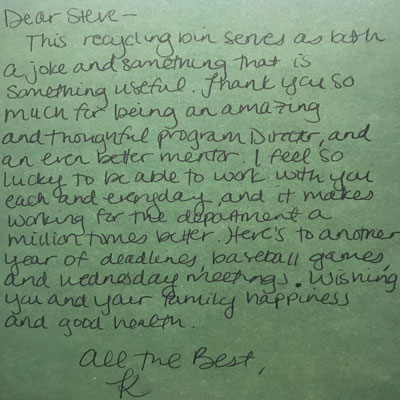 Dear Steve-
This recycling bin serves as both
a joke and something that is
something useful. Thank you so
much for being an amazing
and thoughtful program Director, and
an even better mentor. I feel so
lucky to be able to work with you
each and everyday, and it makes
working for the department a
million times better. Here's to another
year of deadlines, baseball games,
and wednesday meetings. Wishing
you and your family happiness
and good health.
All the Best,
K